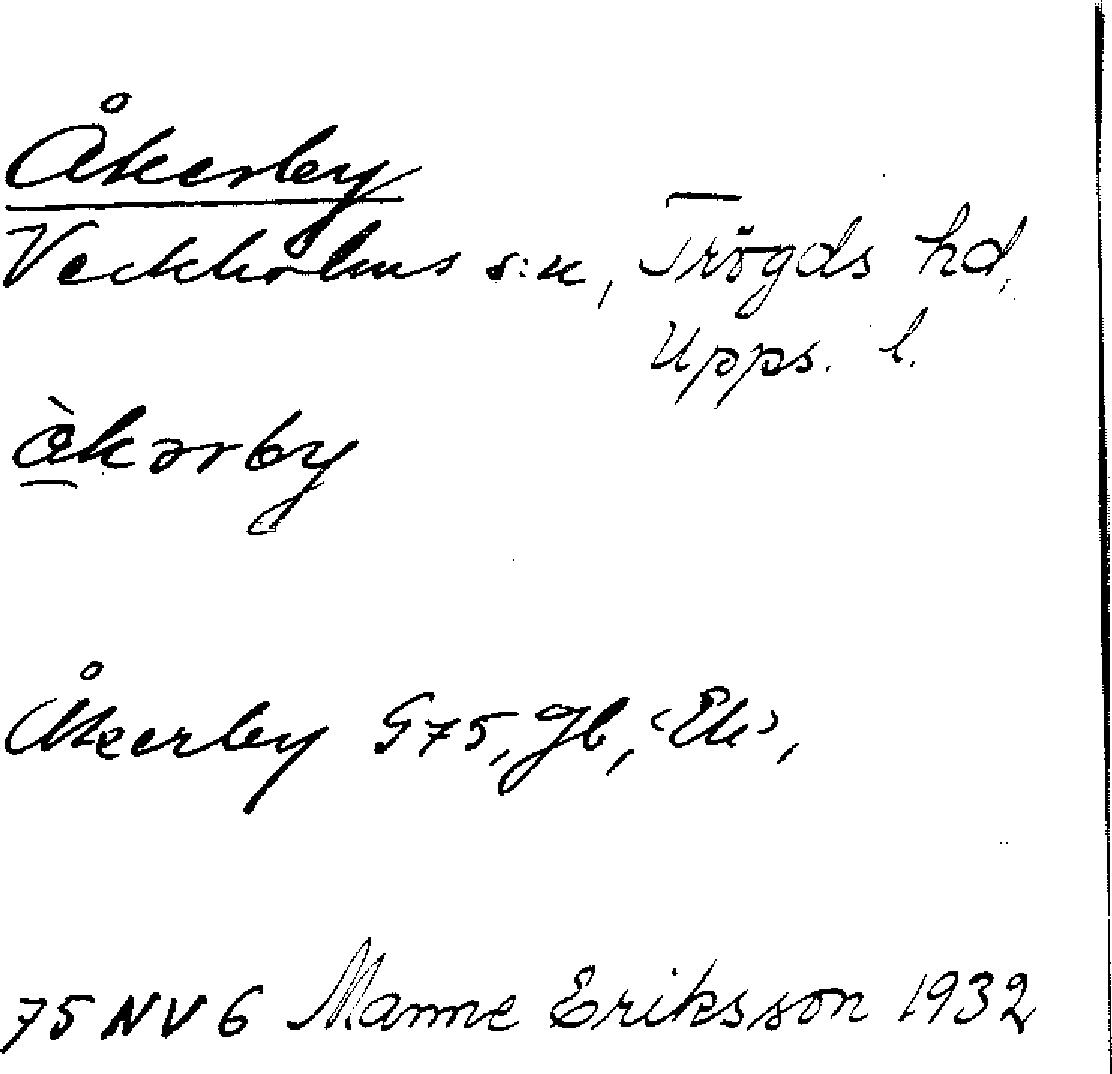 Åkerby
Veckholms s:n, Trögds hd,
Upps. l.
åkərby
Åkerby G75, Jb, ‹Ek›,
75 NV 6 Manne Eriksson 1932